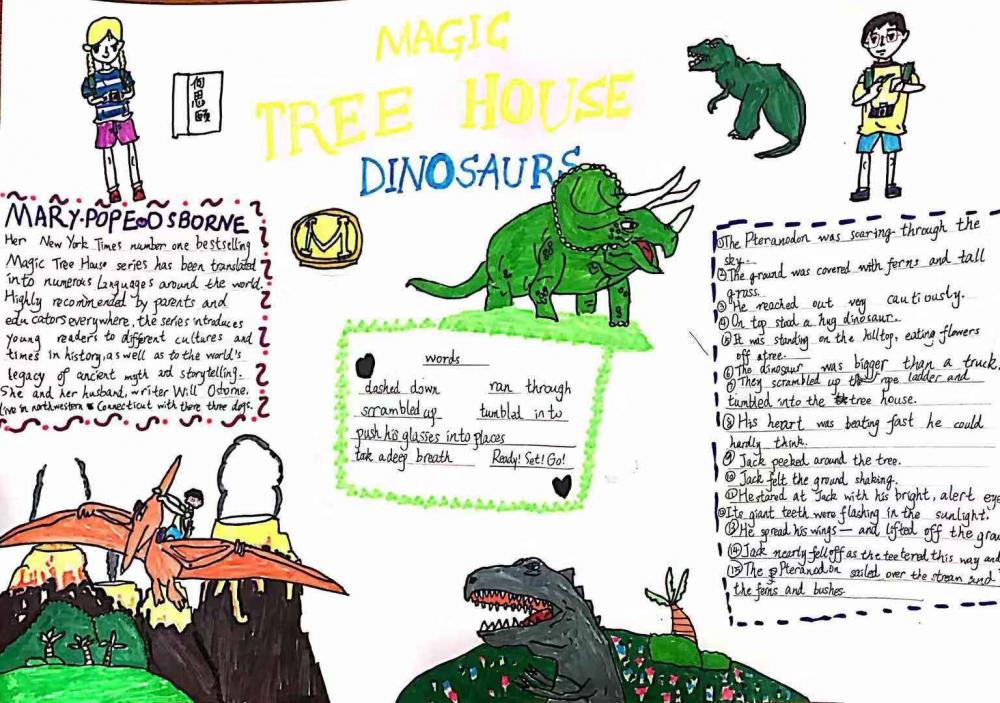 MAGIC
TREE HOUSE
DINOSAURS
何思颐
M
MARY·POPE·OSBORNE
Her New York Times number one bestselling
Magic Tree House series has been translated
into numerous languages around the world.
Highly recommended by parents and
educators everywhere, the series introduces
young readers to different cultures and
times in history, as well as to the world's
legacy of ancient myth and storytelling.
She and her husband, writer Will Osborne.
live in northwestern Connecticut with there three dogs.
words
dashed down ran through
scrambled up tumbled into
push his glasses into places
tak a deep breath Ready! Set! Go!
①The Pteranodon was soaring through the
sky.
②The ground was covered with ferns and tall
grass.
③He reached out very cautiously.
④On top stood a hug dinosaur.
⑤It was standing on the hilltop, eating flowers
off a tree.
⑥The dinosaur was bigger than a truck.
⑦They scrambled up the rope ladder and
tumbled into the tree house.
⑧His heart was beating fast he could
hardly think.
⑨Jack peeked around the tree.
⑩Jack felt the ground shaking.
⑪He stared at Jack with his bright, alert eye
⑫Its giant teeth were flashing in the sunlight.
⑬He spread his wings — and lifted off the grou
⑭Jack nearly fell off as the teetered this way and
⑮The Pteranodon sailed over the stream and
the ferns and bushes